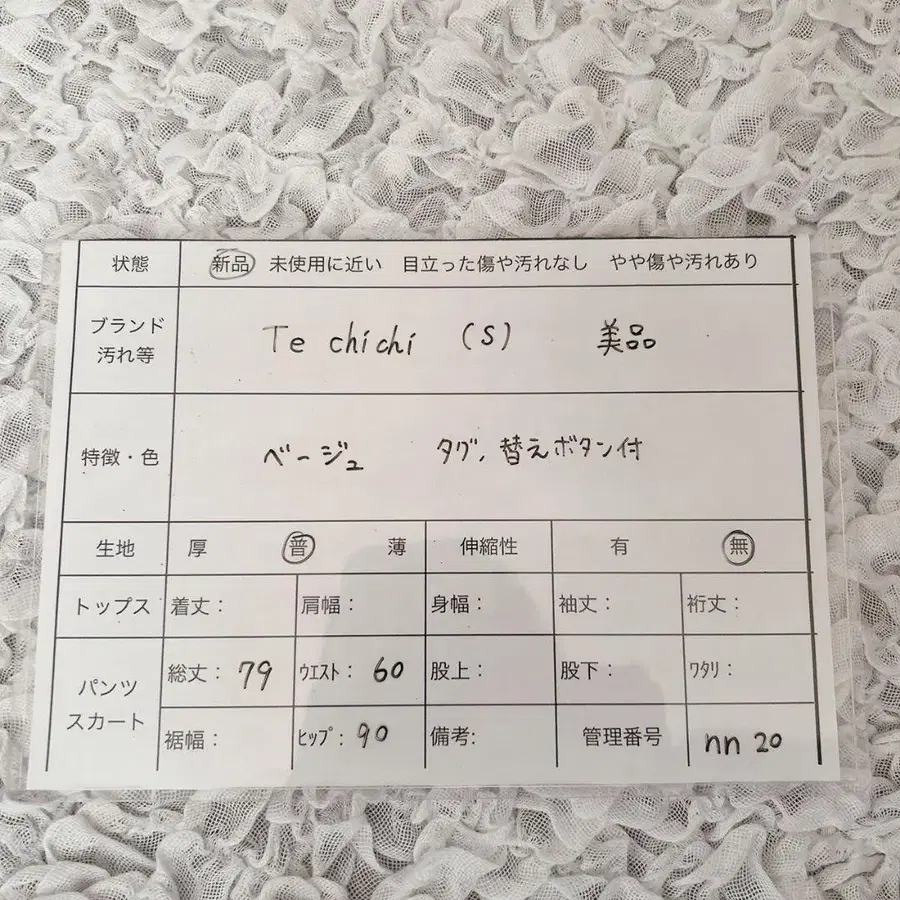 状態 新品 未使用に近い 目立った傷や汚れなし やや傷や汚れあり
ブランド
汚れ等
Te chichi (S) 美品
特徴・色 ベージュ タグ、替えボタン付
生地 厚 普 薄 伸縮性 有 無
トップス 着丈: 肩幅: 身幅: 袖丈: 裄丈:
パンツ
スカート
総丈: 79 ウエスト: 60 股上: 股下: ワタリ:
裾幅: ヒップ: 90 備考: 管理番号 nn 20